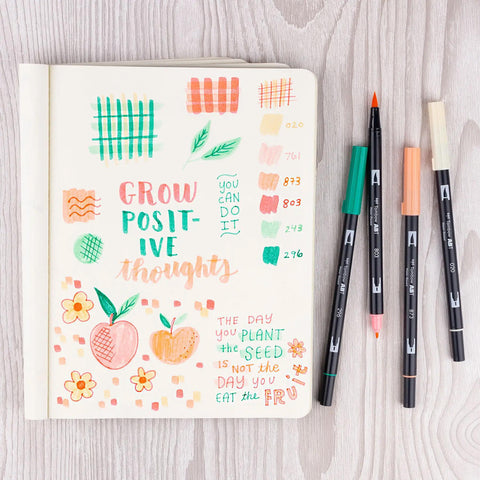 GROW
POSIT-
IVE
thoughts
YOU
CAN
DO
IT
020
761
873
803
243
296
THE DAY
YOU PLANT
the SEED
IS NOT the
DAY YOU
EAT the FRUIT
Tombow ABT
296
Tombow ABT
803
Tombow ABT
873
Tombow ABT
020